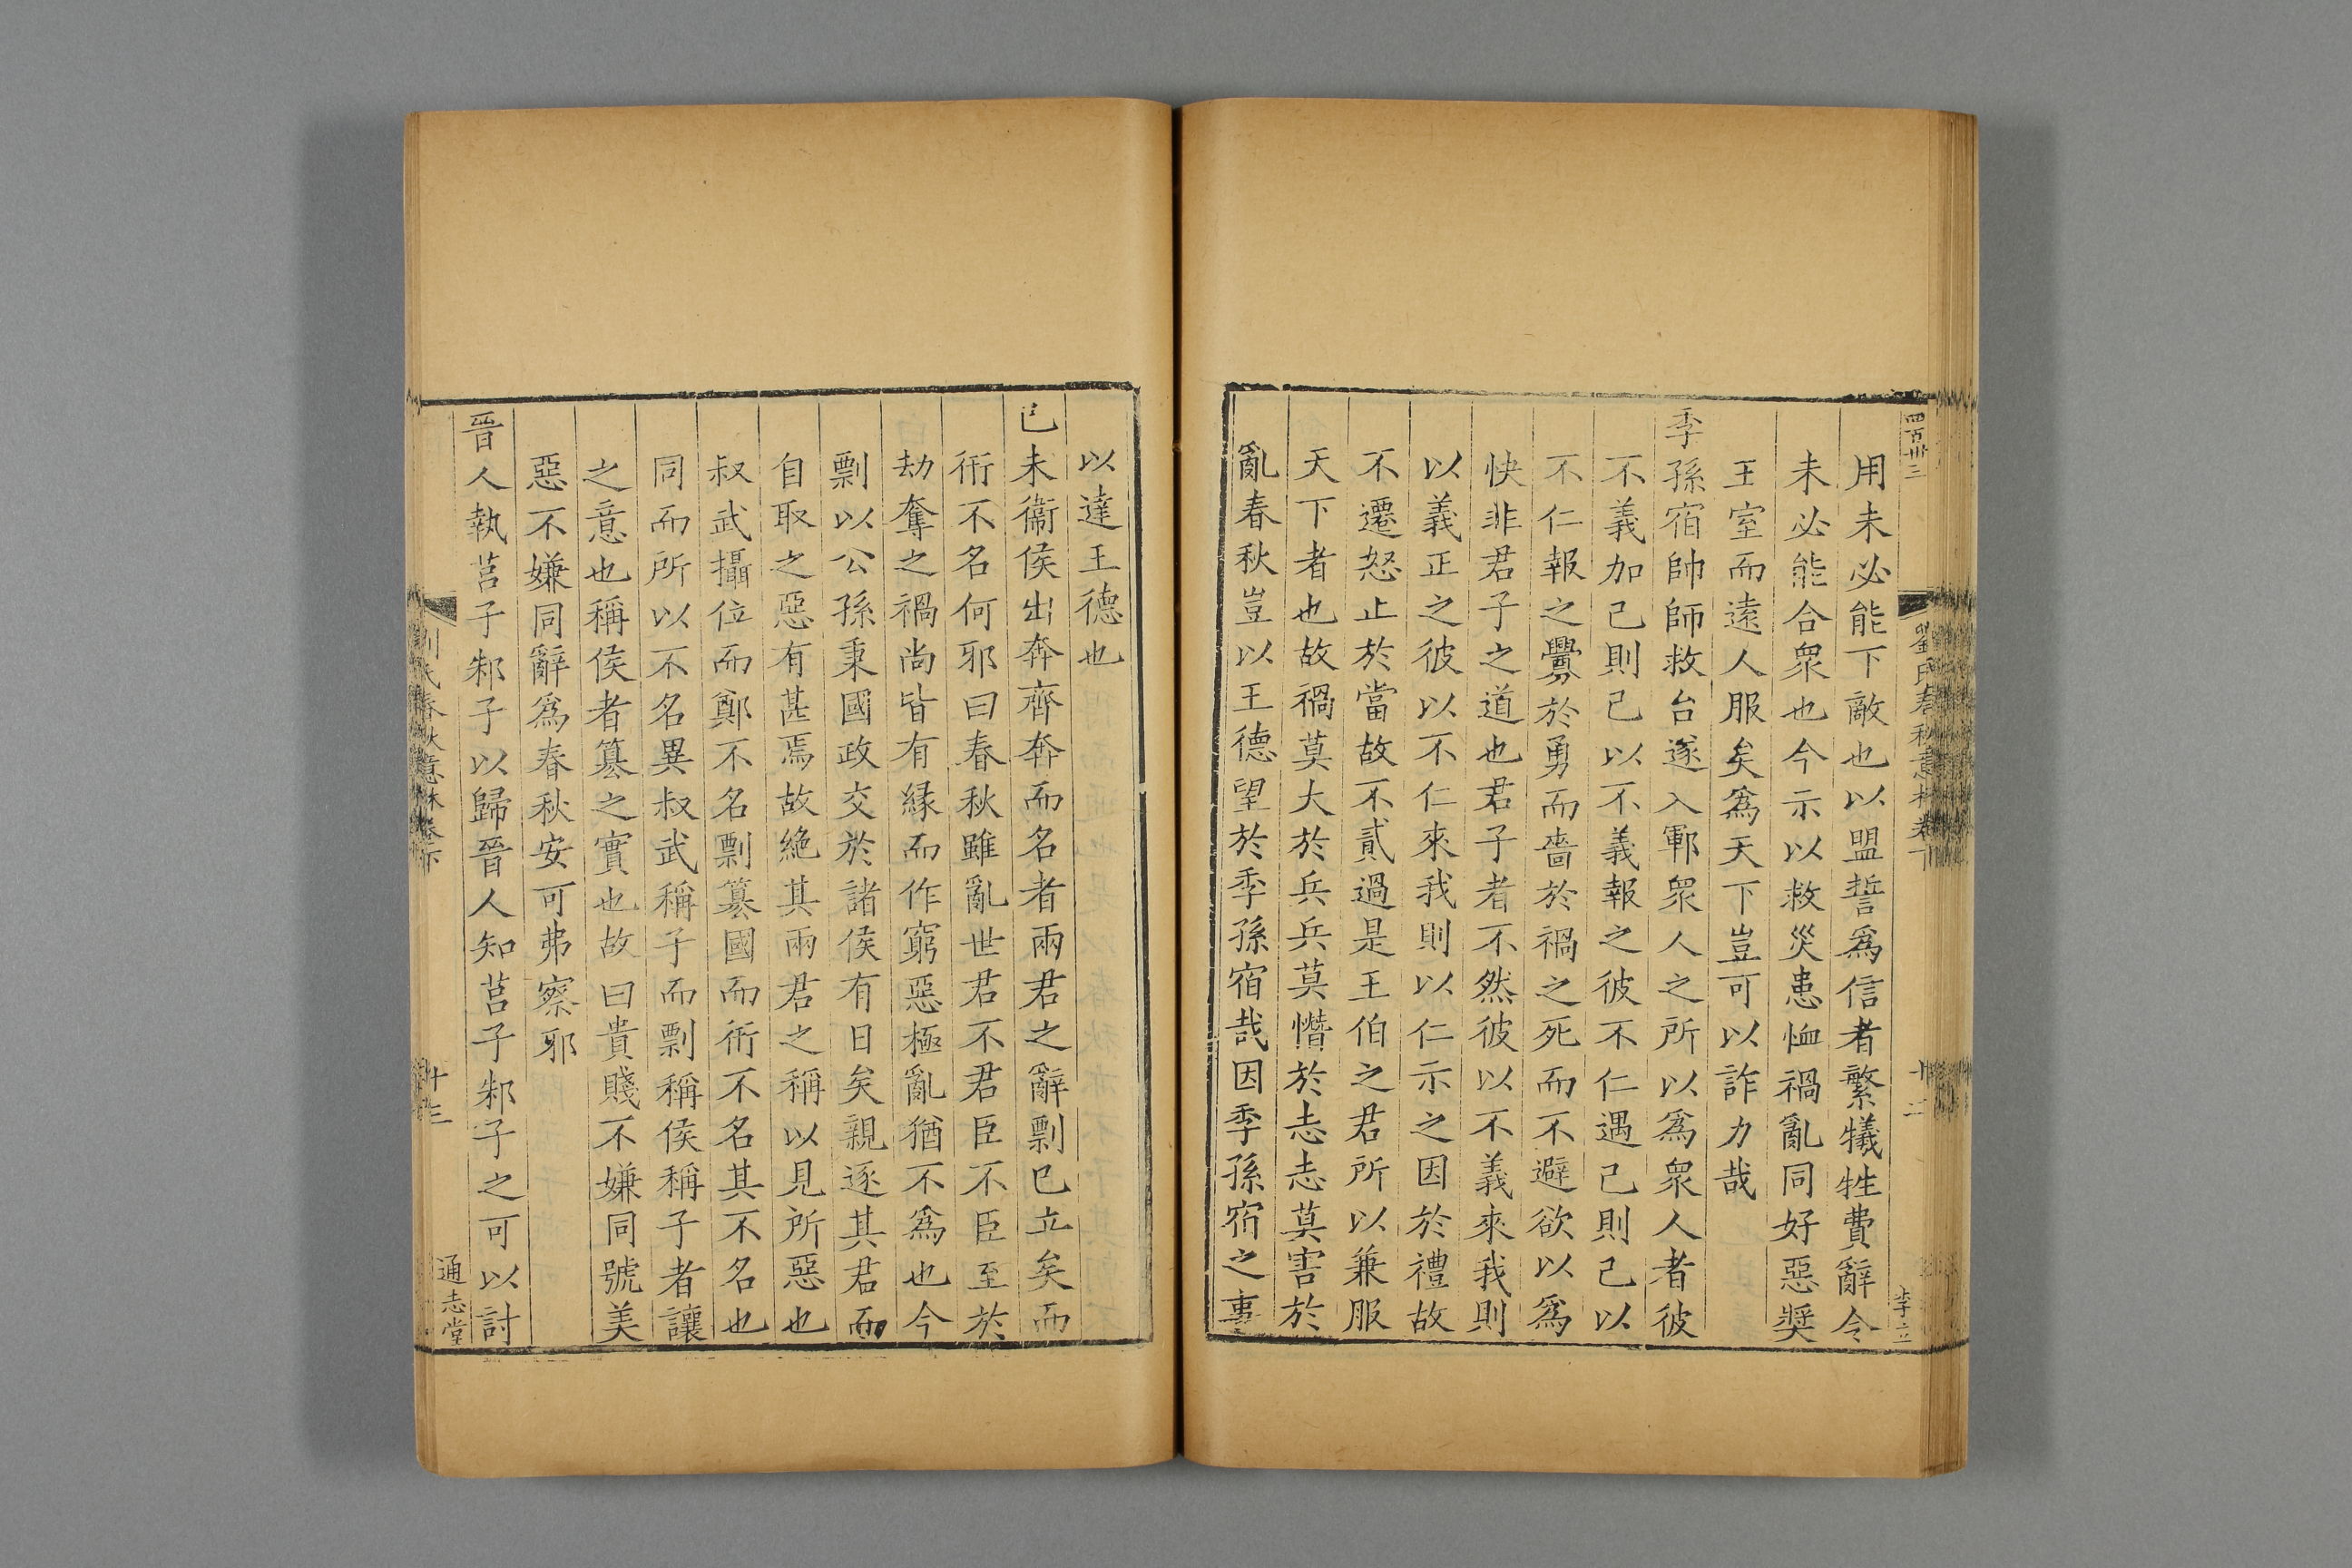 四百卅三
劉氏春秋意林卷下
十二
李立
用未必能下敵也以盟誓爲信者繁犧牲費辭令
未必能合衆也今示以救災患恤禍亂同好惡奬
王室而遠人服矣爲天下豈可以詐力哉
季孫宿帥師救台遂入鄆衆人之所以爲衆人者彼
不義加己則己以不義報之彼不仁遇己則己以
不仁報之釁於勇而嗇於禍之死而不避欲以爲
快非君子之道也君子者不然彼以不義來我則
以義正之彼以不仁來我則以仁示之因於禮故
不遷怒止於當故不貳過是王伯之君所以兼服
天下者也故禍莫大於兵兵莫憯於志志莫害於
亂春秋豈以王德望於季孫宿哉因季孫宿之事
以達王德也
己未衞侯出奔齊奔而名者兩君之辭剽已立矣而
衎不名何邪曰春秋雖亂世君不君臣不臣至於
劫奪之禍尚皆有緣而作窮惡極亂猶不爲也今
剽以公孫秉國政交於諸侯有日矣親逐其君而
自取之惡有甚焉故絶其兩君之稱以見所惡也
叔武攝位而鄭不名剽簒國而衎不名其不名也
同而所以不名異叔武稱子而剽稱侯稱子者讓
之意也稱侯者簒之實也故曰貴賤不嫌同號美
惡不嫌同辭爲春秋安可弗察邪
晉人執莒子邾子以歸晉人知莒子邾子之可以討
劉氏春秋意林卷下
十三
通志堂